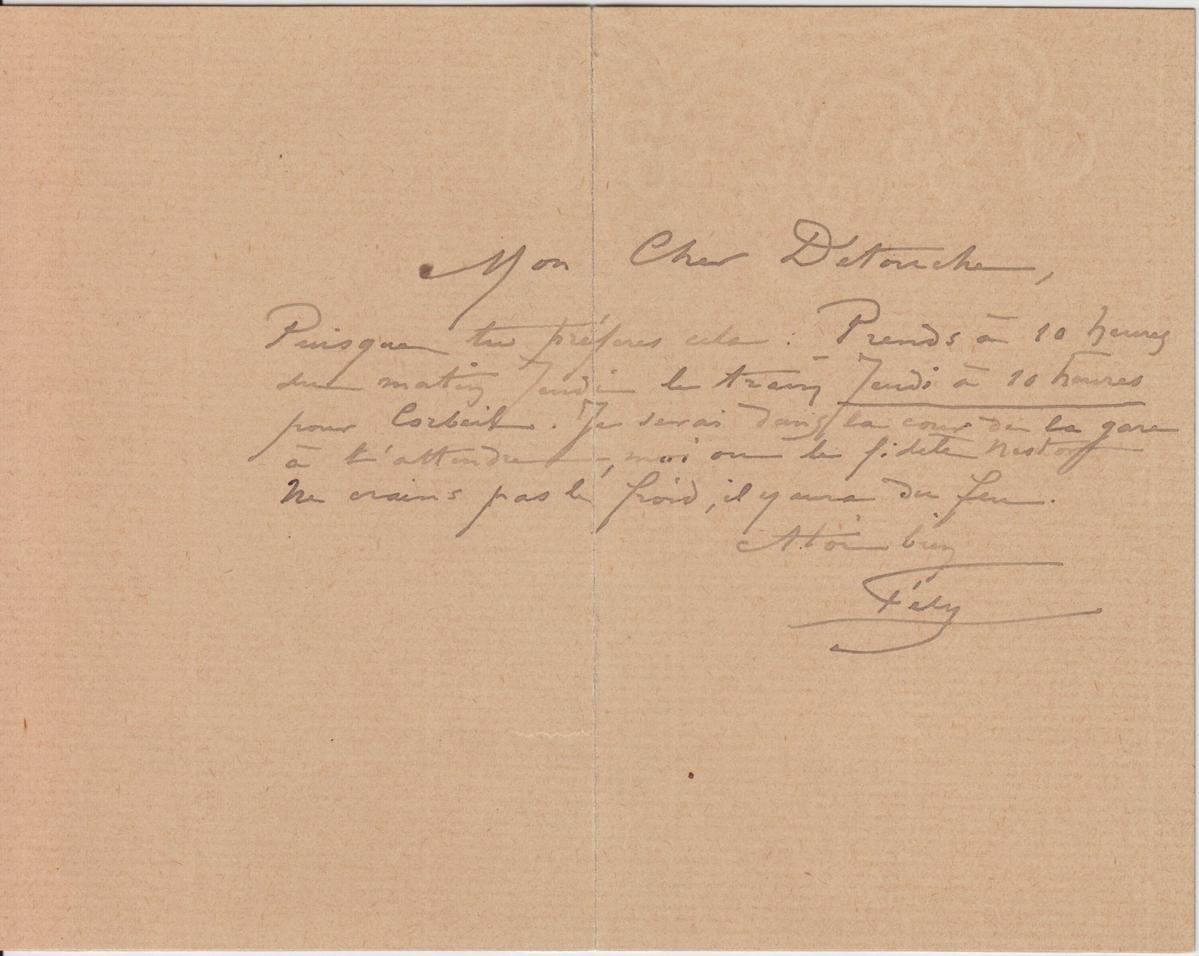 Mon Cher Détouche,
Puisque tu préfères cela : Prends à 10 heures
du matin Jeudi le train Jeudi à 10 heures
pour Corbeil. Je serai dans la cour de la gare
à t'attendre, moi ou le fidèle Nestor
Ne crains pas le froid, il y aura du feu.
A toi bien
Fély